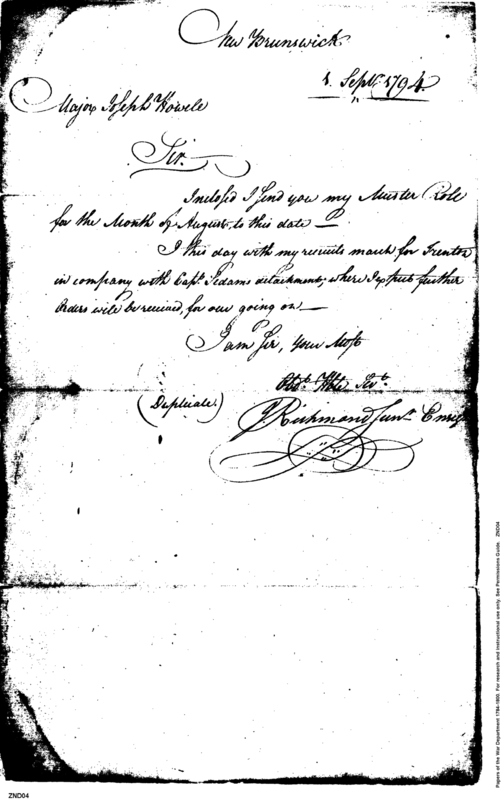 New Brunswick
1. Septr. 1794
Major Joseph Howele
Sir.
Inclosed I send you my Muster Role
for the Month of August, to this date —
I this day with my recruits march for Trenton
in company with Capt. Pedams detachment; where I expect further
Orders will be received, for our going on —
I am Sir, Your Most
Obdt. Hble Servt.
(Duplicate.)
Richmond Junr. Ensign
ZND04
Papers of the War Department 1784-1800. For research and instructional use only. See Permissions Guide. ZND04